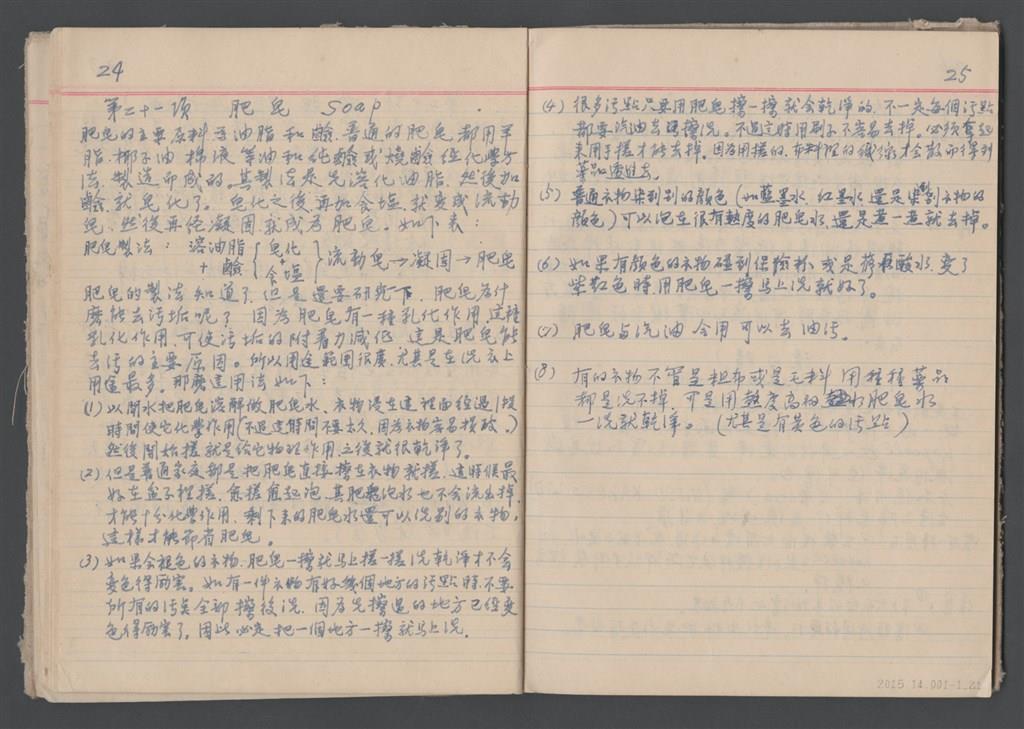 24
第二十一項 肥皂 Soap
肥皂的主要原料是油脂和鹼.普通的肥皂.都用羊
脂.椰子油 棉液 等油和純鹼或燒鹼經化學方
法.製造而成的。其製法是先溶化油脂.然後加
鹼.就皂化了。皂化之後再加食塩.就变成流動
皂.然後再經凝固.就成為肥皂。如下表：
肥皂製法： 溶油脂 + 鹼 { 皂化 + 食塩 } 流動皂→凝固→肥皂
肥皂的製法知道了.但是還要研究一下.肥皂為什
麽能去污垢呢？因為肥皂有一種乳化作用.这種
乳化作用.可使污垢的附着力減低.這是肥皂能
去污的主要原因。所以用途範圍很廣.尤其是在洗衣上
用途最多。那麽這用法如下：
(1) 以開水把肥皂溶解做肥皂水、衣物浸在這裡面經過1段
時間使它化學作用(不过这時間不要太久.因為衣物容易損破。)
然後開始搓就是給它物理作用.之後就很乾淨了。
(2) 但是普通家庭都是把肥皂直接擦在衣物就搓.這時候最
好在盆子裡搓.愈搓愈起泡.其肥皂泡水也不会流出掉.
才能十分化學作用.剩下来的肥皂水還可以洗別的衣物。
這樣才能節省肥皂。
(3) 如果会褪色的衣物.肥皂一擦就马上搓一搓洗乾淨才不会
变色得厉害。如有一件衣物有好幾個地方的污點時.不要
所有的污点全部擦後洗.因為先擦過的地方已經变
色得厉害了。因此必定把一個地方一擦就马上洗.
25
(4) 很多污點只要用肥皂擦一擦就会乾淨的.不一定每個污點
都要汽油去擦洗。不过这時用刷子不容易去掉。必須拿起
来用手搓才能去掉。因為用搓的.布料裡的纖維才会散而得到
藥品透進去。
(5) 普通衣物染到別的顏色(如藍墨水.紅墨水還是染製衣物的
顏色)可以泡在很有熱度的肥皂水.還是煮一煮就去掉。
(6) 如果有顏色的衣物碰到保險粉.或是蓚酸水.变了
紫紅色時.用肥皂一擦马上洗就好了。
(7) 肥皂与汽油合用可以去油污。
(8) 有的衣物不管是粗布或是毛料用種種藥品
都是洗不掉.可是用熱度高的肥皂水
一洗就乾淨。(尤其是有黃色的污點)
2015.14.001-1_21